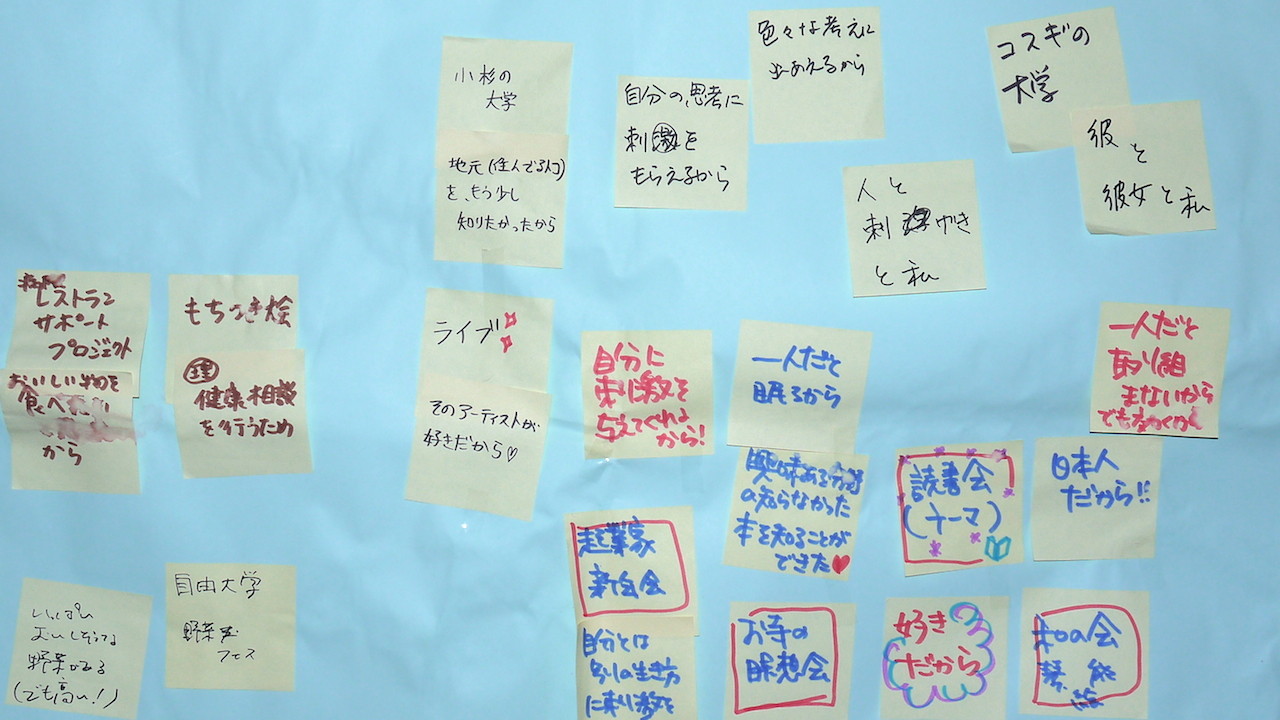 小杉の
大学
地元(住んでる人口)
を、もう少し
知りたかったから
自分の思考に
刺激を
もらえるから
色々な考えに
出あえるから
コスギの
大学
彼と
彼女と私
人と
刺げき
と私
レストラン
サポート
プロジェクト
おいしい物を
食べたい
から
もちつき大会
理
健康相談
を行うため
ライブ
そのアーティストが
好きだから♡
自分に
刺激を
与えてくれる
から!
一人だと
眠るから
興味ある分野
の知らなかった
本を知ることが
できた♥
一人だと
取り組
まないから
読書会
(テーマ)
日本人
だから!!
起業家
新年会
自分とは
別の生き方
に刺激を
お寺の
瞑想会
好き
だから
和の会
いっぱい
おいしそうな
野菜がある
(でも高い!)
自由大学
野菜
フェス